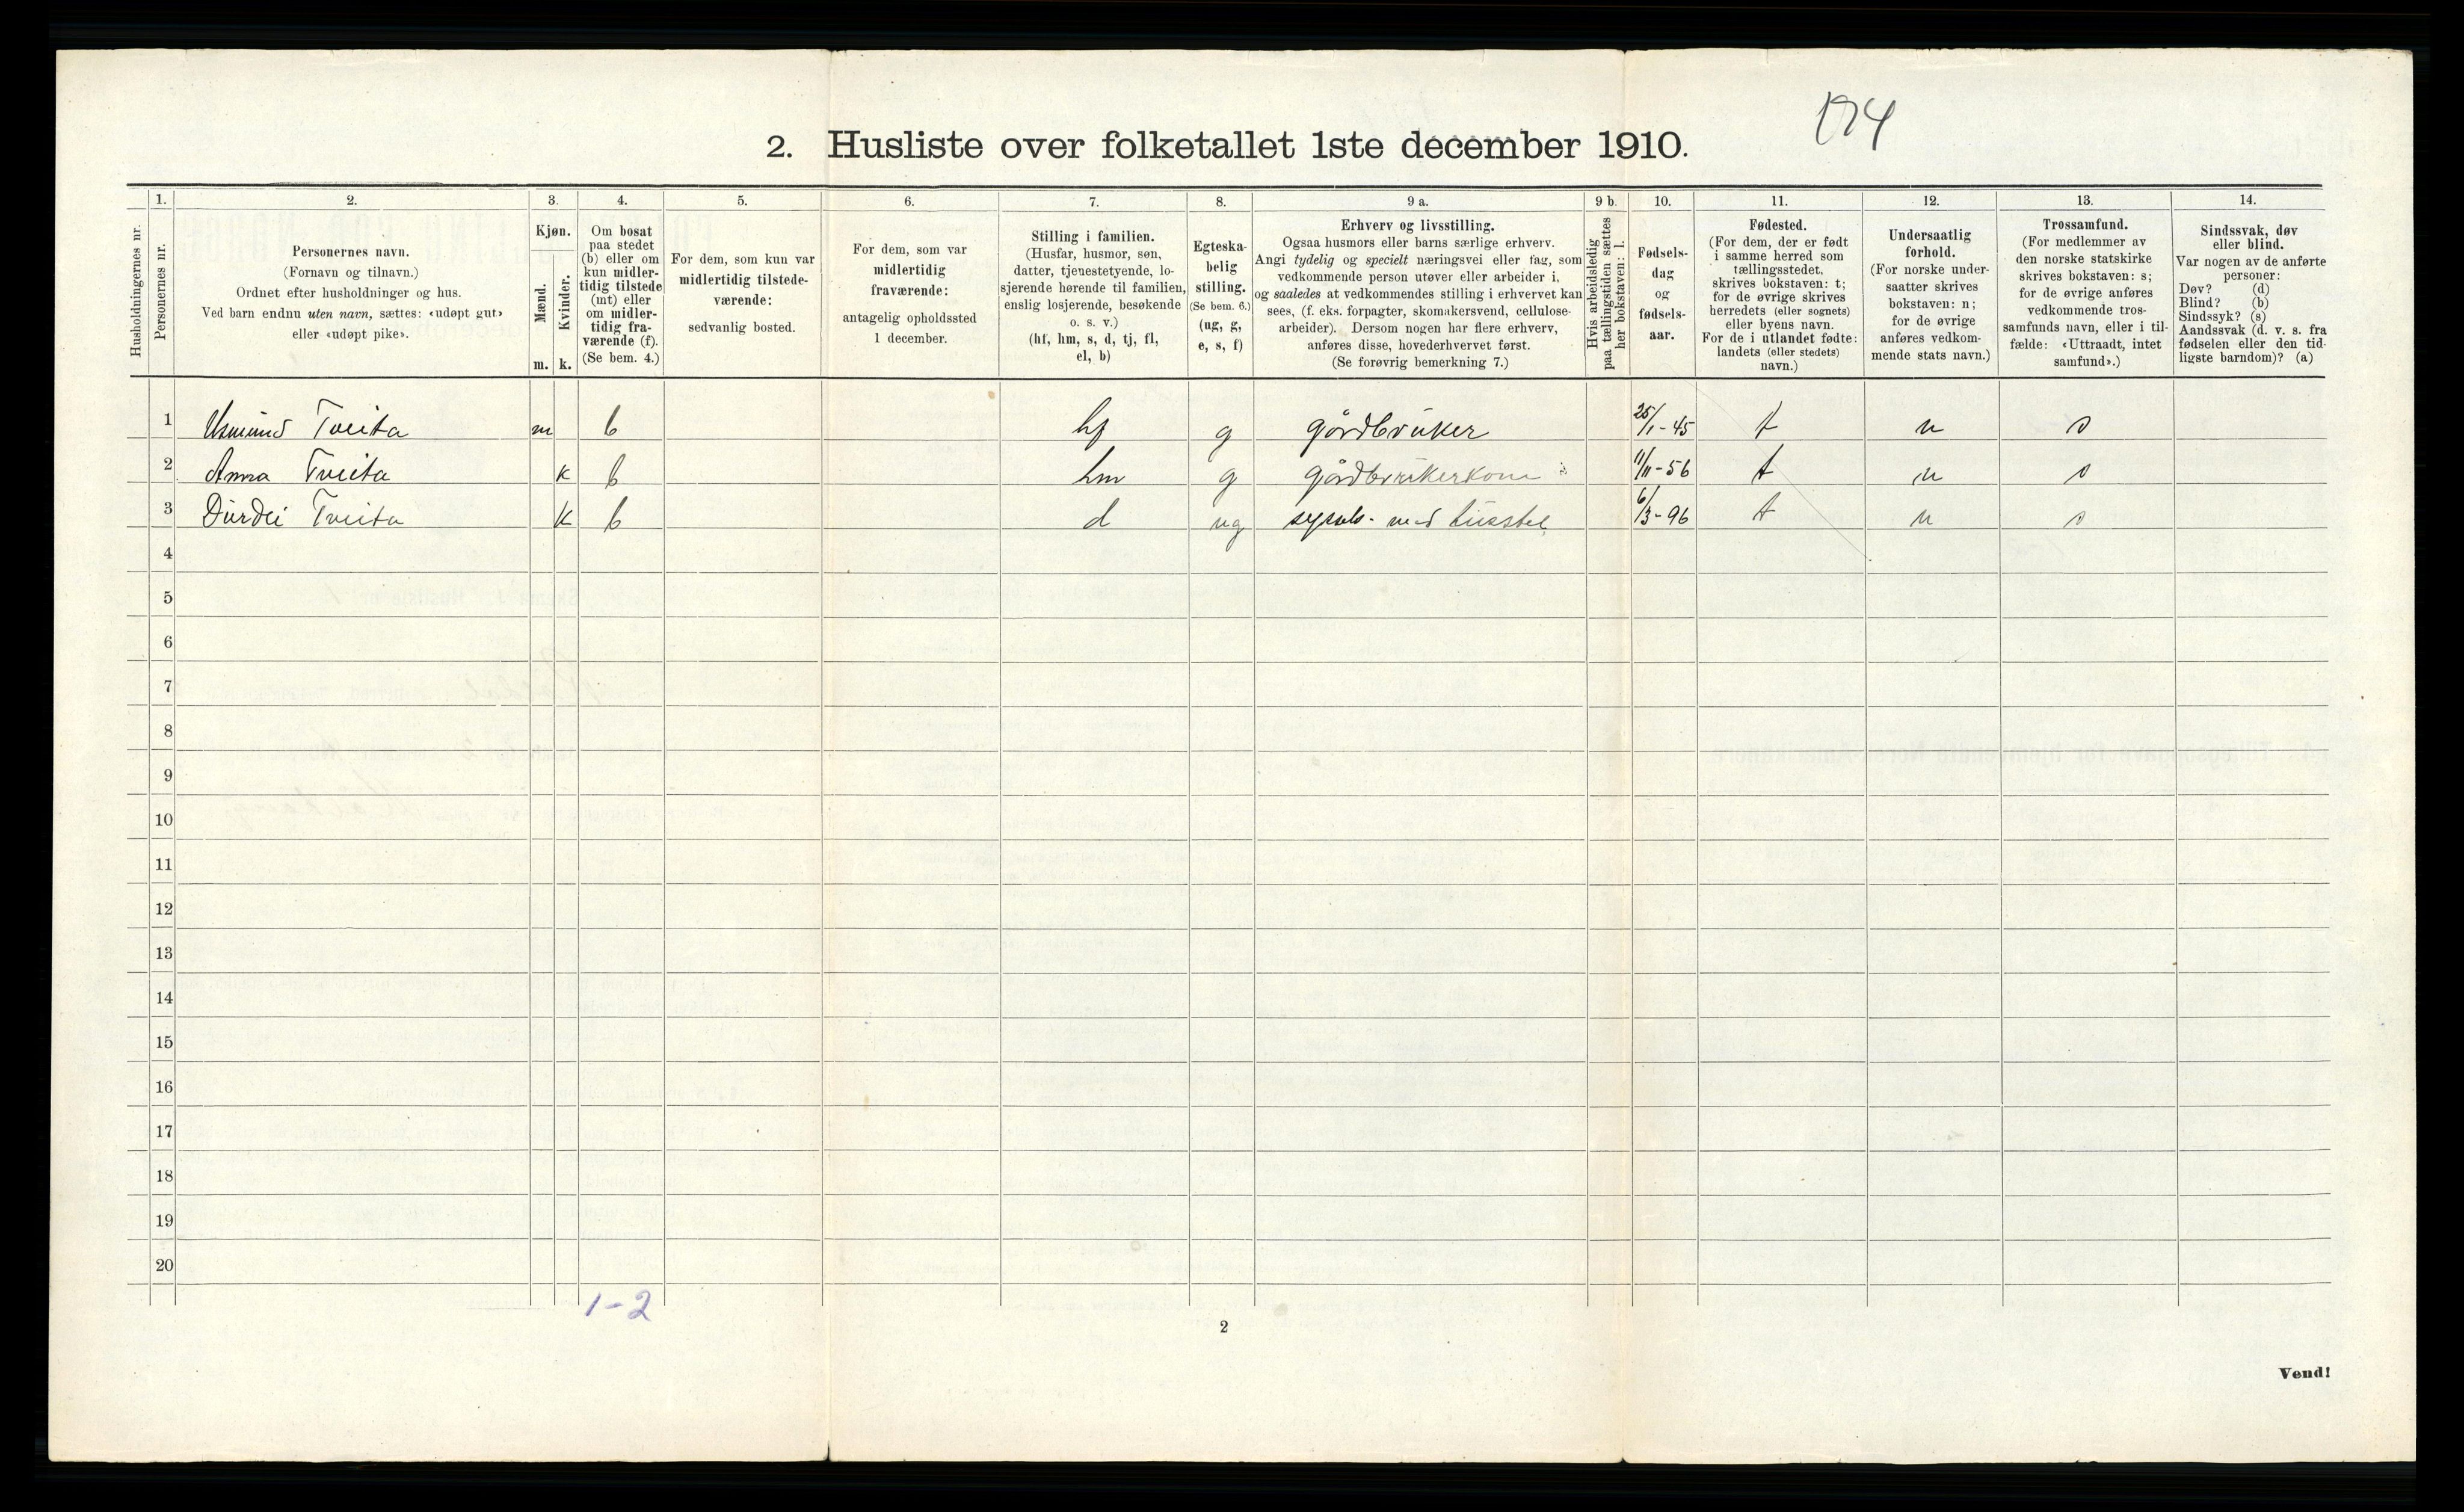 174
2. Husliste over folketallet 1ste december 1910.
Husholdningernes nr.
1.
Personernes nr.
2.
Personernes navn.
(Fornavn og tilnavn.)
Ordnet efter husholdninger og hus.
Ved barn endnu uten navn, sættes: «udøpt gut»
eller «udøpt pike».
3.
Kjøn.
Mænd.
Kvinder.
m. k.
4.
Om bosat
paa stedet
(b) eller om
kun midler-
tidig tilstede
(mt) eller
om midler-
tidig fra-
værende (f).
(Se bem. 4.)
5.
For dem, som kun var
midlertidig tilstede-
værende:
sedvanlig bosted.
6.
For dem, som var
midlertidig
fraværende:
antagelig opholdssted
1 december.
7.
Stilling i familien.
(Husfar, husmor, søn,
datter, tjenestetyende, lo-
sjerende hørende til familien,
enslig losjerende, besøkende
o. s. v.)
(hf, hm, s, d, tj, fl,
el, b)
8.
Egteska-
belig
stilling.
(Se bem. 6.)
(ug, g,
e, s, f)
9 a.
Erhverv og livsstilling.
Ogsaa husmors eller barns særlige erhverv.
Angi tydelig og specielt næringsvei eller fag, som
vedkommende person utøver eller arbeider i,
og saaledes at vedkommendes stilling i erhvervet kan
sees, (f. eks. forpagter, skomakersvend, cellulose-
arbeider). Dersom nogen har flere erhverv,
anføres disse, hovederhvervet først.
(Se forøvrig bemerkning 7.)
9 b.
Hvis arbeidsledig
paa tællingstiden sættes
her bokstaven: l.
10.
Fødsels-
dag
og
fødsels-
aar.
11.
Fødested.
(For dem, der er født
i samme herred som
tællingsstedet,
skrives bokstaven: t;
for de øvrige skrives
herredets (eller sognets)
eller byens navn.
For de i utlandet fødte:
landets (eller stedets)
navn.)
12.
Undersaatlig
forhold.
(For norske under-
saatter skrives
bokstaven: n;
for de øvrige
anføres vedkom-
mende stats navn.)
13.
Trossamfund.
(For medlemmer av
den norske statskirke
skrives bokstaven: s;
for de øvrige anføres
vedkommende tros-
samfunds navn, eller i til-
fælde: «Uttraadt, intet
samfund».)
14.
Sindssvak, døv
eller blind.
Var nogen av de anførte
personer:
Døv? (d)
Blind? (b)
Sindssyk? (s)
Aandssvak (d. v. s. fra
fødselen eller den tid-
ligste barndom)? (a)
1 Asmund Tveita m b hf g gårdbruker 25/1-45 t n s
2 Anna Tveita k b hm g gårdbrukerkone 11/11-56 t n s
3 Durdei Tveita k b d ug sysels. med husstel 6/3-96 t n s
4
5
6
7
8
9
10
11
12
13
14
15
16
17
18
19
20
1-2
2
Vend!